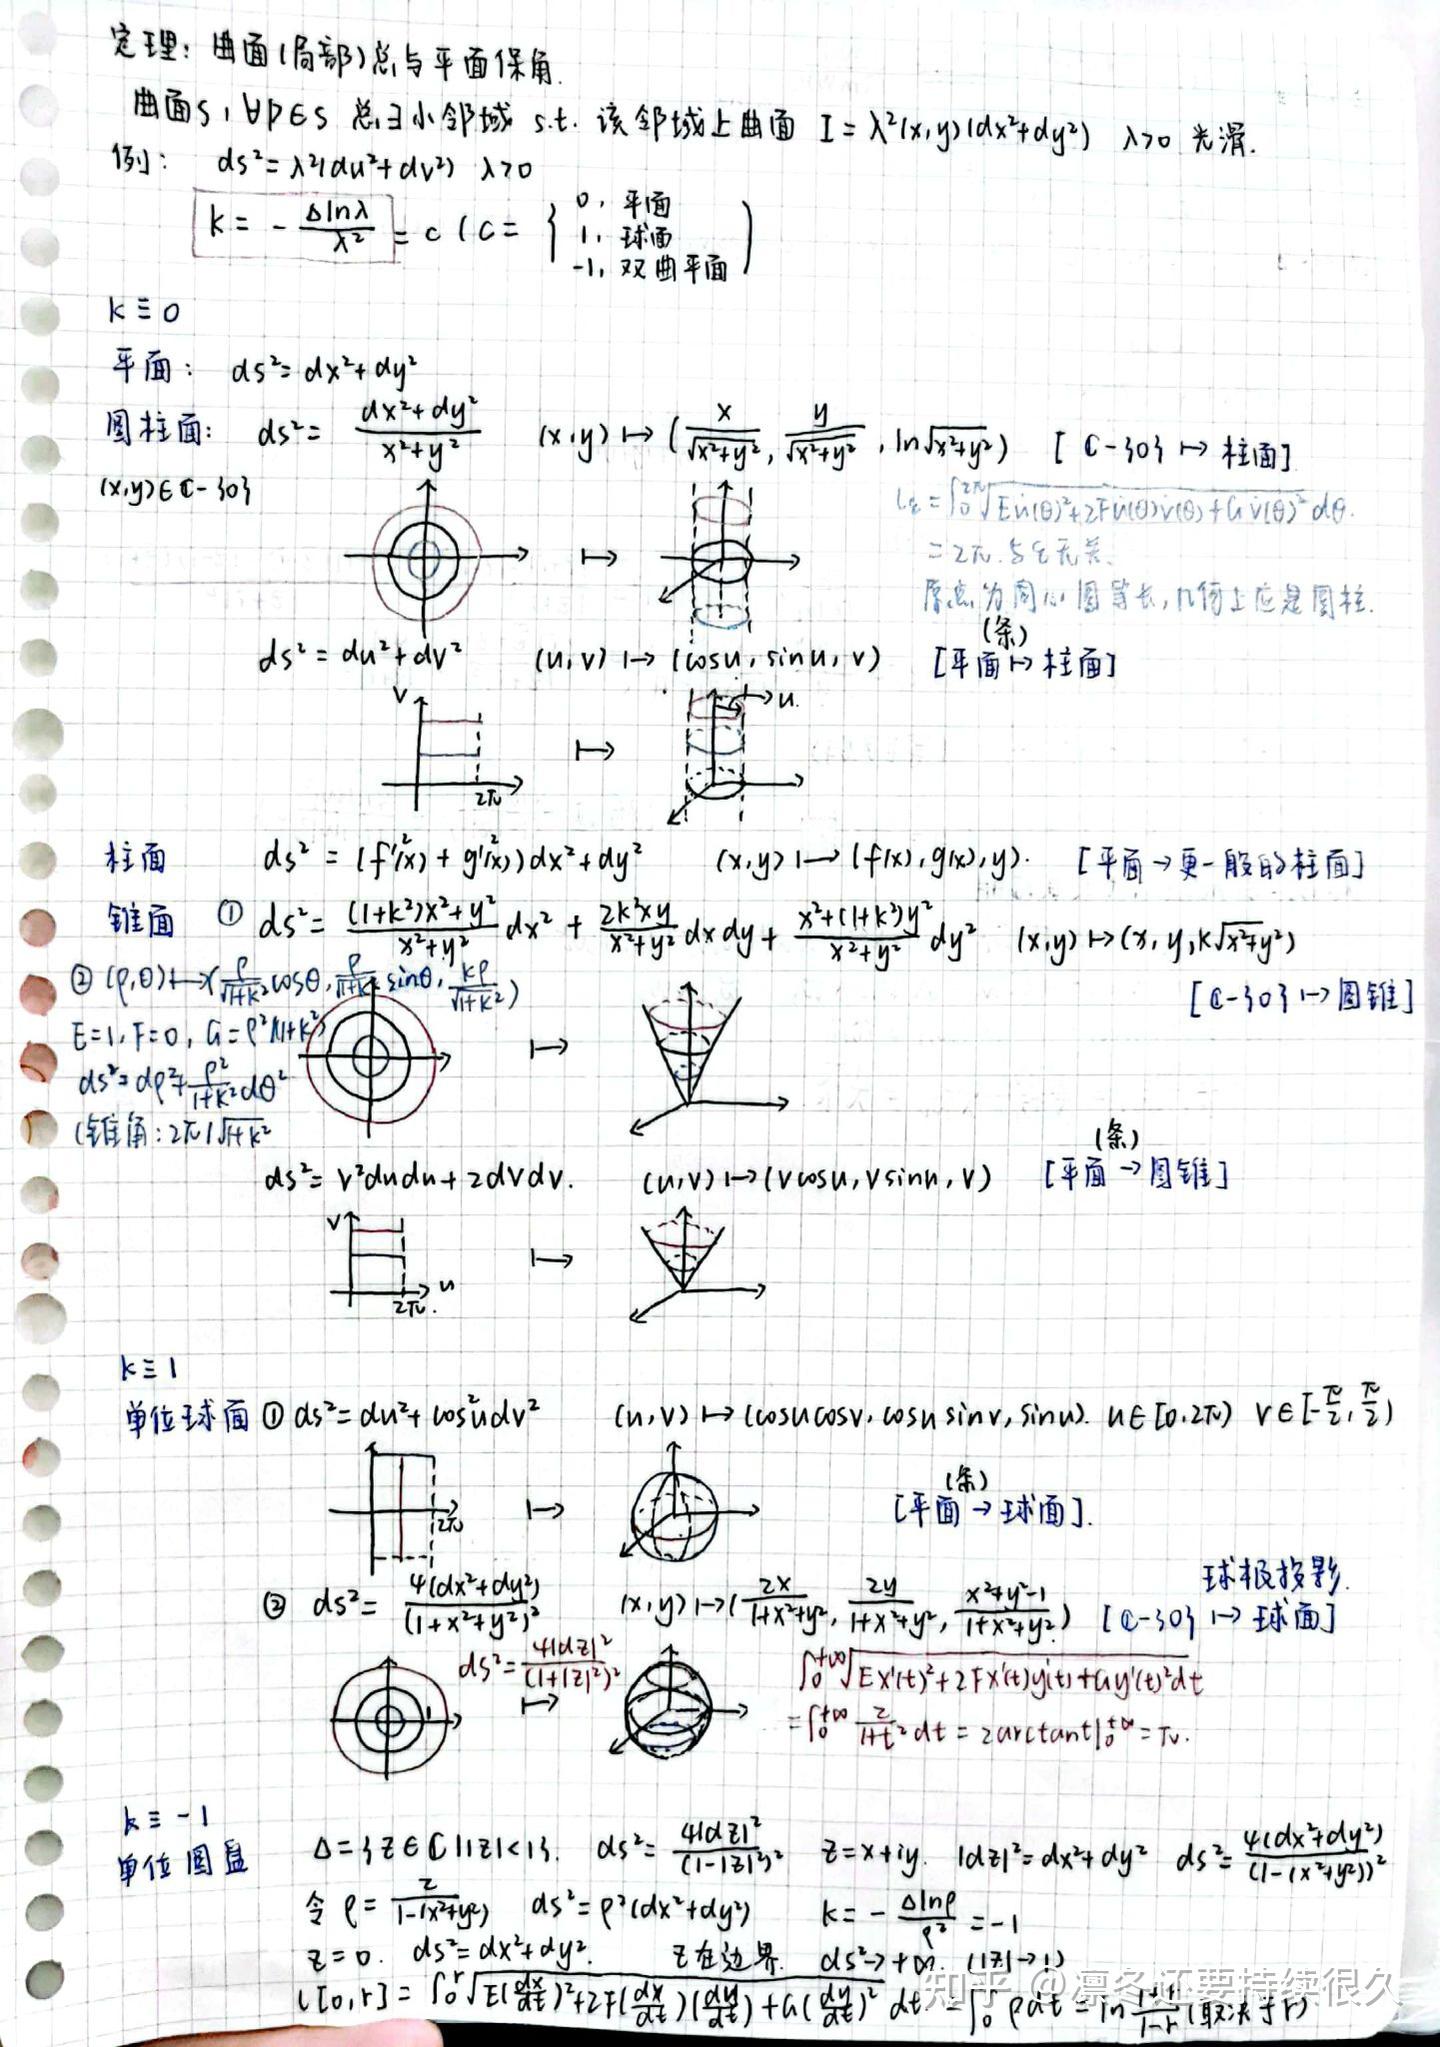 定理: 曲面(局部)总与平面保角.
曲面S, ∀P∈S 总∃小邻域 s.t. 该邻域上曲面 I = λ²(x,y)(dx²+dy²) λ>0 光滑.
例: ds² = λ²(du²+dv²) λ>0
K = - Δlnλ/λ² = c (c = { 0, 平面
1, 球面
-1, 双曲平面 )
K ≡ 0
平面: ds² = dx²+dy²
圆柱面: ds² = (dx²+dy²)/(x²+y²) (x,y) ↦ (x/√(x²+y²), y/√(x²+y²), ln√(x²+y²)) [ℂ-{0} ↦ 柱面]
(x,y)∈ℂ-{0}
Lε = ∫₀^2π √(Eu̇(θ)²+2Fu̇(θ)v̇(θ)+Gv̇(θ)²) dθ.
= 2π. 与ε无关.
原点为同心圆等长, 几何上应是圆柱.
ds² = du²+dv² (u,v) ↦ (cosu, sinu, v) [平面(条) ↦ 柱面]
v
u.
2π
柱面 ds² = (f'²(x) + g'²(x))dx²+dy² (x,y) ↦ (f(x), g(x), y). [平面→更一般的柱面]
锥面 ① ds² = ((1+k²)x²+y²)/(x²+y²) dx² + 2k²xy/(x²+y²) dxdy + (x²+(1+k²)y²)/(x²+y²) dy² (x,y) ↦ (x, y, k√(x²+y²))
[ℂ-{0} ↦ 圆锥]
② (ρ,θ) ↦ (ρ/√(1+k²) cosθ, ρ/√(1+k²) sinθ, kρ/√(1+k²))
E=1, F=0, G=ρ²/(1+k²)
ds² = dρ²+ρ²/(1+k²) dθ²
(锥角: 2π/√(1+k²)
ds² = v²dudu+2dvdv. (u,v) ↦ (vcosu, vsinu, v) [平面(条)→圆锥]
v
u
2π.
K ≡ 1
单位球面 ① ds² = du²+cos²udv² (u,v) ↦ (cosucosv, cosusinv, sinu). u∈[0,2π) v∈[-π/2, π/2)
2π
[平面(条)→球面].
球极投影.
② ds² = 4(dx²+dy²)/(1+x²+y²)² (x,y) ↦ (2x/(1+x²+y²), 2y/(1+x²+y²), (x²+y²-1)/(1+x²+y²)) [ℂ-{0} ↦ 球面]
ds² = 4|dz|²/(1+|z|²)²
1
∫₀^+∞ √(Ex'(t)²+2Fx'(t)y'(t)+Gy'(t)²) dt
= ∫₀^+∞ 2/(1+t²) dt = 2arctant|₀^+∞ = π.
K ≡ -1
单位圆盘 Δ = {z∈ℂ||z|<1}. ds² = 4|dz|²/(1-|z|²)² z=x+iy. |dz|²=dx²+dy² ds² = 4(dx²+dy²)/(1-(x²+y²))²
令 ρ = 2/(1-(x²+y²)) ds² = ρ²(dx²+dy²) K = - Δlnρ/ρ² = -1
z=0. ds²=dx²+dy². z在边界. ds²→+∞. (|z|→1)
L[0,r] = ∫₀^r √(E(dx/dt)²+2F(dx/dt)(dy/dt)+G(dy/dt)²) dt = ∫₀^r ρdt = ln (1+r)/(1-r) (取决于r)
知乎 @凛冬还要持续很久